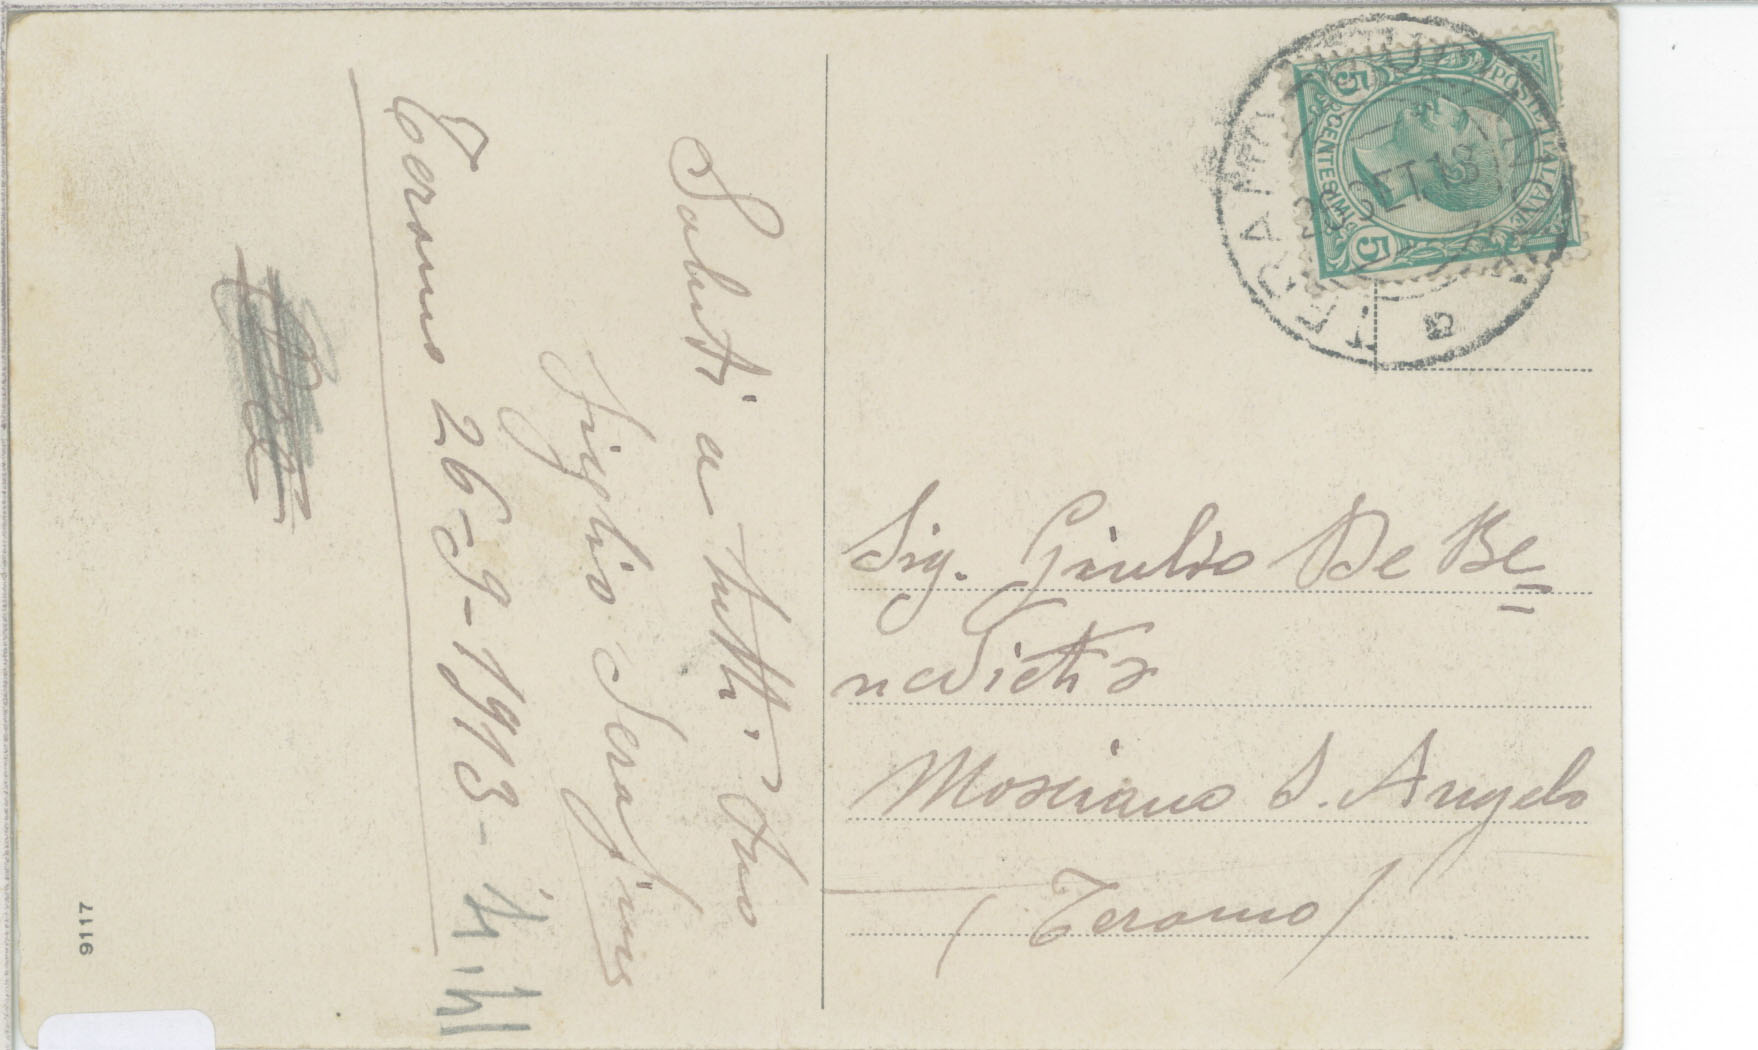 Saluti a tutti. Tuo
figlio Serafino
Teramo 26-9-1913-
Sig. Giulio De Be=
nedictis
Mosciano S. Angelo
(Teramo)
POSTE ITALIANE
5 CENTESIMI 5
TERAMO
SET 13
9117